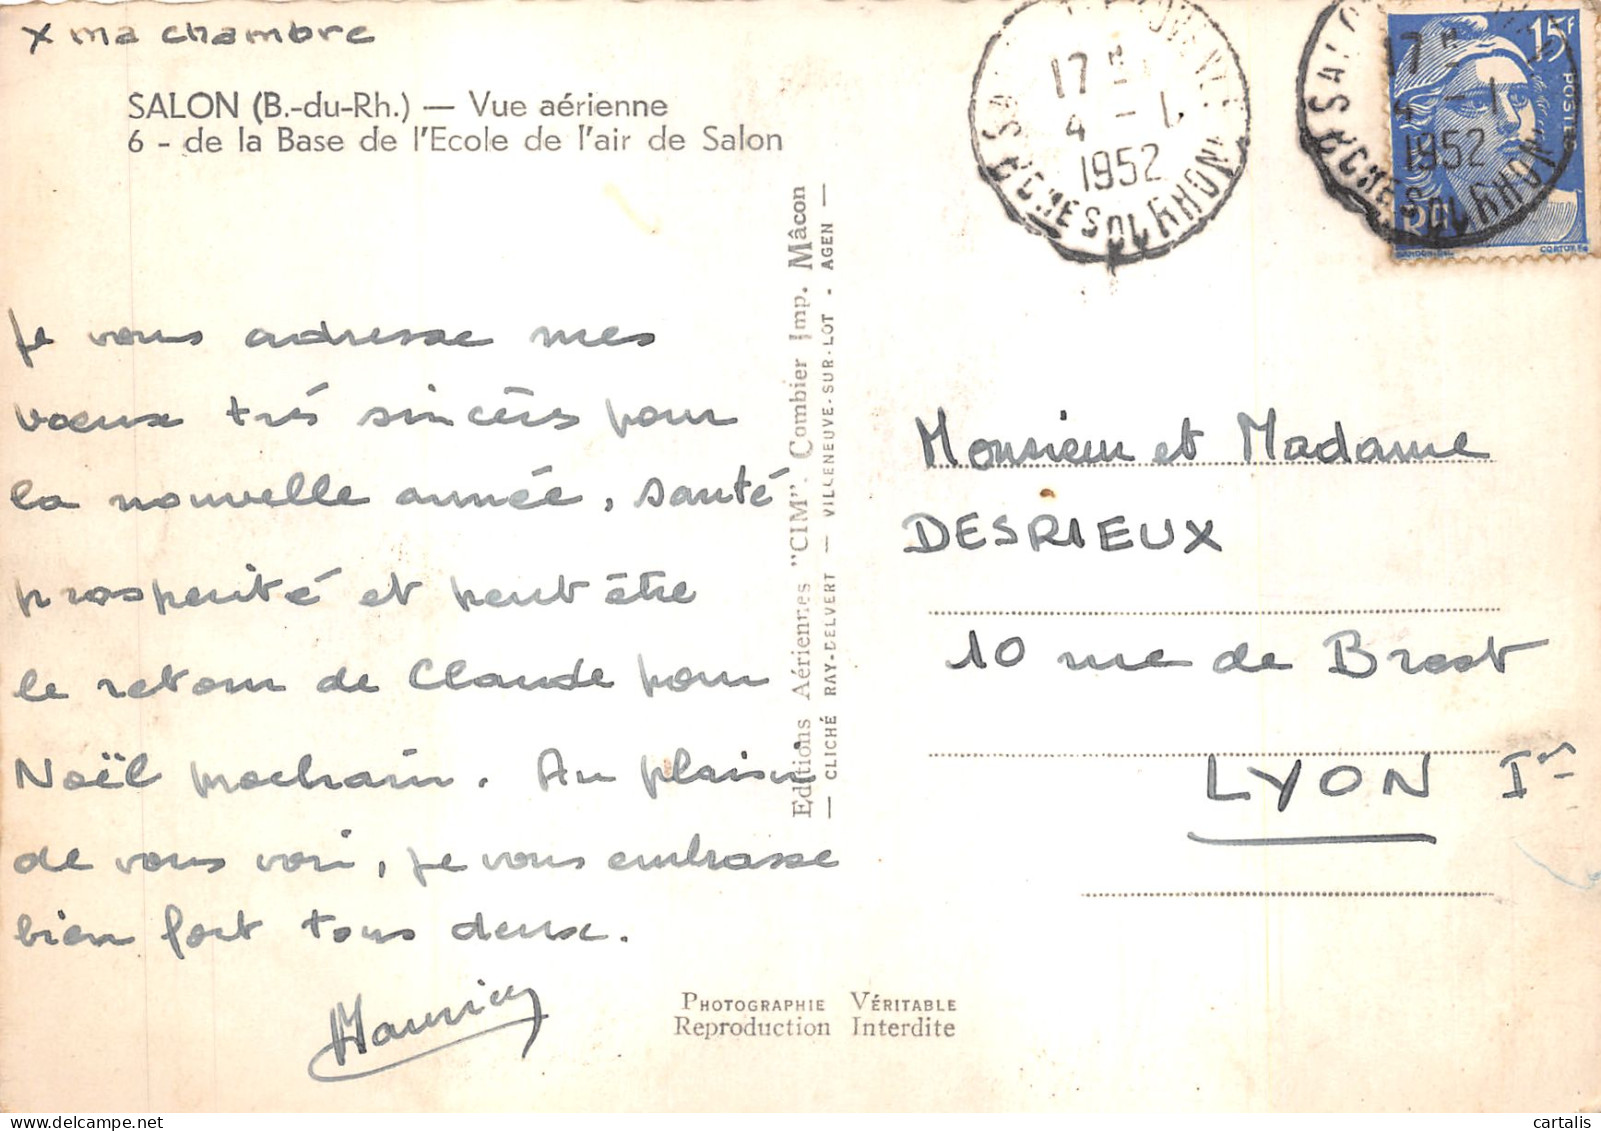 x ma chambre
SALON (B.-du-Rh.) — Vue aérienne
6 - de la Base de l'Ecole de l'air de Salon
Je vous adresse mes
voeux très sincères pour
la nouvelle année, santé
prospérité et peut être
le retour de Claude pour
Noël prochain. Au plaisir
de vous voir, je vous embrasse
bien fort tous deux.
Maurice
Editions Aériennes "CIM". Combier Imp. Mâcon
— CLICHÉ RAY-DELVERT — VILLENEUVE-SUR-LOT - AGEN —
PHOTOGRAPHIE VÉRITABLE
Reproduction Interdite
17 H
4 - 1
1952
BCHES DU RHONE
17 H
4 - 1
1952
BCHES DU RHONE
15F
POSTES
Monsieur et Madame
DESRIEUX
10 rue de Brest
LYON Ier
© cartalis